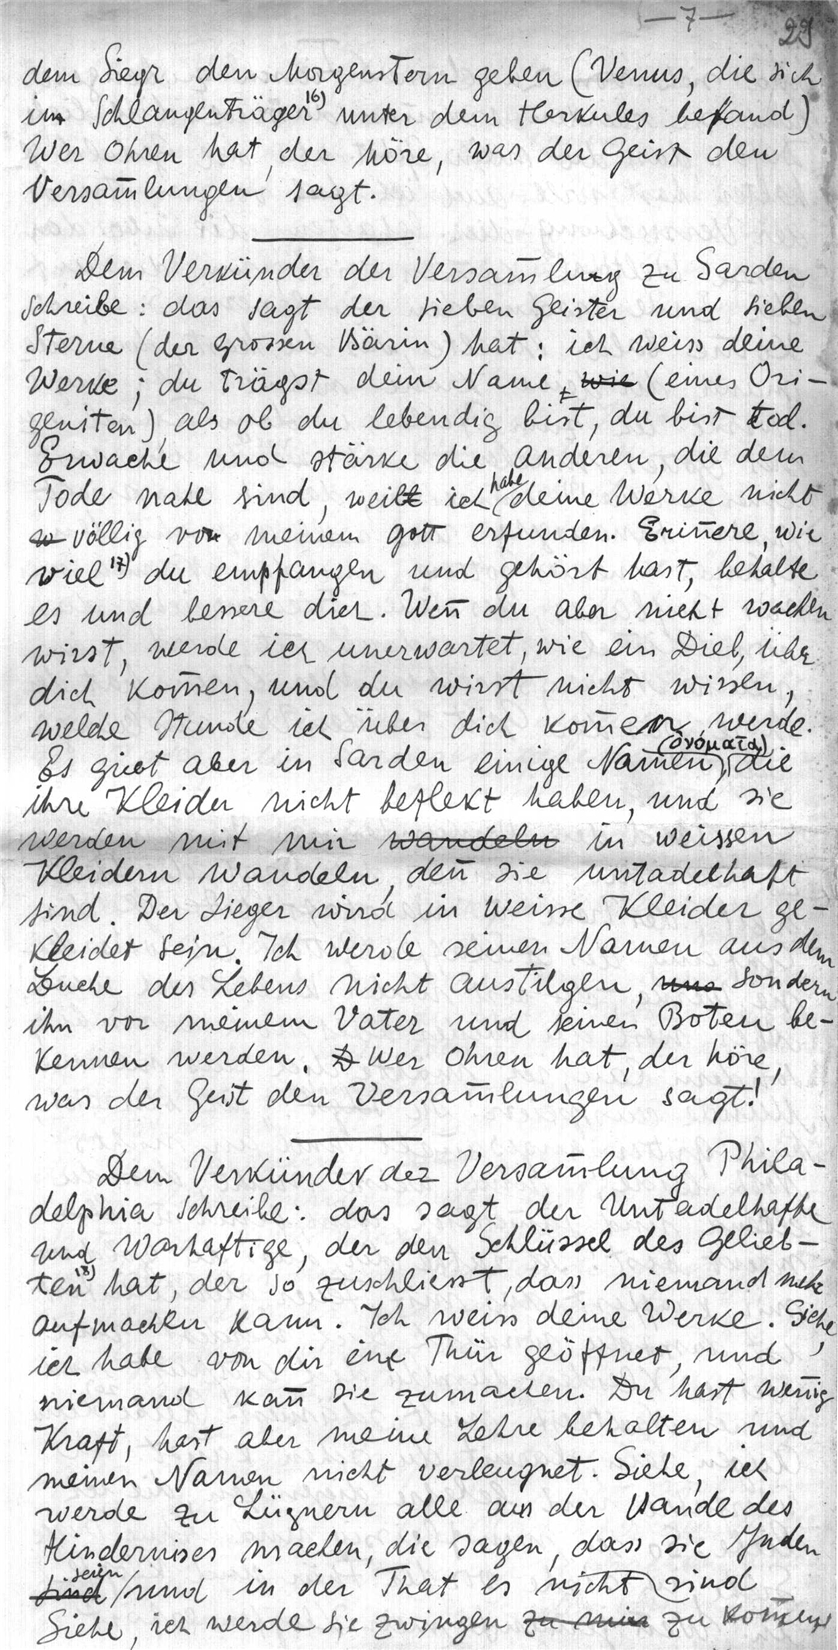 —7—
29
dem Siegr den Morgenstern geben (Venus, die sich
im Schlangenträger¹⁶⁾ unter dem Herkules befand)
Wer Ohren hat, der höre, was der Geist den
Versam̄lungen sagt.
Dem Verkünder der Versam̄lung zu Sarden
schreibe: das sagt der sieben Geister und sieben
Sterne (der grossen Bärin) hat: ich weiss deine
Werke; du trägst dein Name, wie (eines Ori-
geniten) als ob du lebendig bist, du bist tod.
Erwache und stärke die anderen, die dem
Tode nahe sind, weil ich habe deine Werke nicht
w völlig vor meinem gott erfunden. Erin̄ere, wie
viel¹⁷⁾ du empfangen und gehört hast, behalte
es und bessere dich. Wen̄ du aber nicht wachen
wirst, werde ich unerwartet, wie ein Dieb, über
dich kom̄en, und du wirst nicht wissen,
welche Stunde ich über dich kom̄en werde.
Es giebt aber in Sarden einige Namen (ὀνόματα), die
ihre Kleider nicht beflekt haben, und sie
werden mit mir wandeln in weissen
Kleidern wandeln, den̄ sie untadelhaft
sind. Der Sieger wird in weisse Kleider ge-
kleidet sein. Ich werde seinen Namen aus dem
Buche des Lebens nicht austilgen, uns sondern
ihn vor meinem Vater und seinen Boten be-
kennen werden. D Wer Ohren hat, der höre,
was der Geist den Versam̄lungen sagt!
Dem Verkünder der Versam̄lung Phila-
delphia schreibe: das sagt der Untadelhafte
und Warhaftige, der den Schlüssel des Gelieb-
ten¹⁸⁾ hat, der so zuschliesst, dass niemand mehr
aufmachen kann. Ich weiss deine Werke. Siehe,
ich habe vor dir eine Thür geöffnet, und
niemand kan̄ sie zumachen. Du hast wenig
Kraft, hast aber meine Lehre behalten und
meinen Namen nicht verleugnet. Siehe, ich
werde zu Lügnern alle aus der Bande des
Hindernises machen, die sagen, dass sie Juden
sind seien (und in der That es nicht) sind
Siehe, ich werde sie zwingen zu mir zu kom̄en